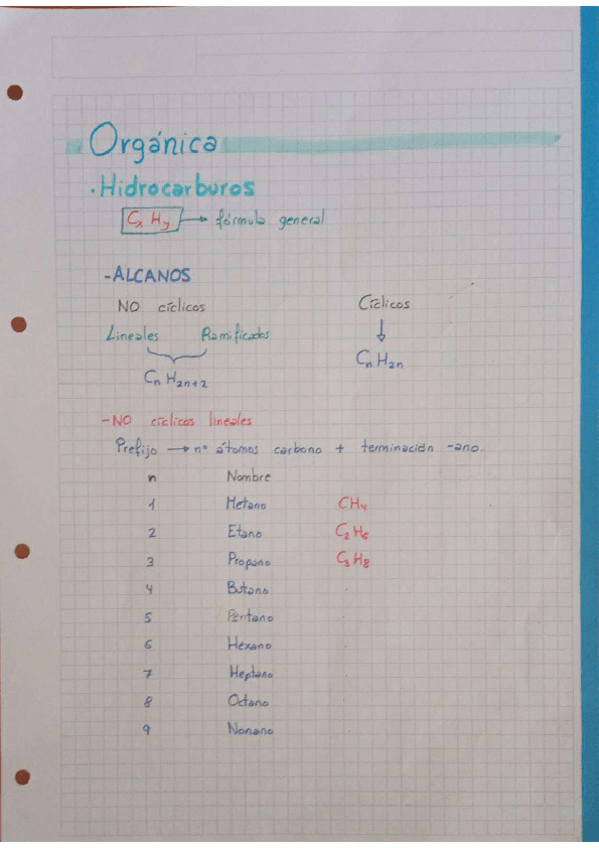 Orgánica
· Hidrocarburos
CxHy → fórmula general
- ALCANOS
NO cíclicos Cíclicos
Lineales Ramificados ↓
CnH2n+2 CnH2n
- NO cíclicos lineales
Prefijo → nº átomos carbono + terminación -ano.
n Nombre
1 Metano CH4
2 Etano C2H6
3 Propano C3H8
4 Butano
5 Pentano
6 Hexano
7 Heptano
8 Octano
9 Nonano